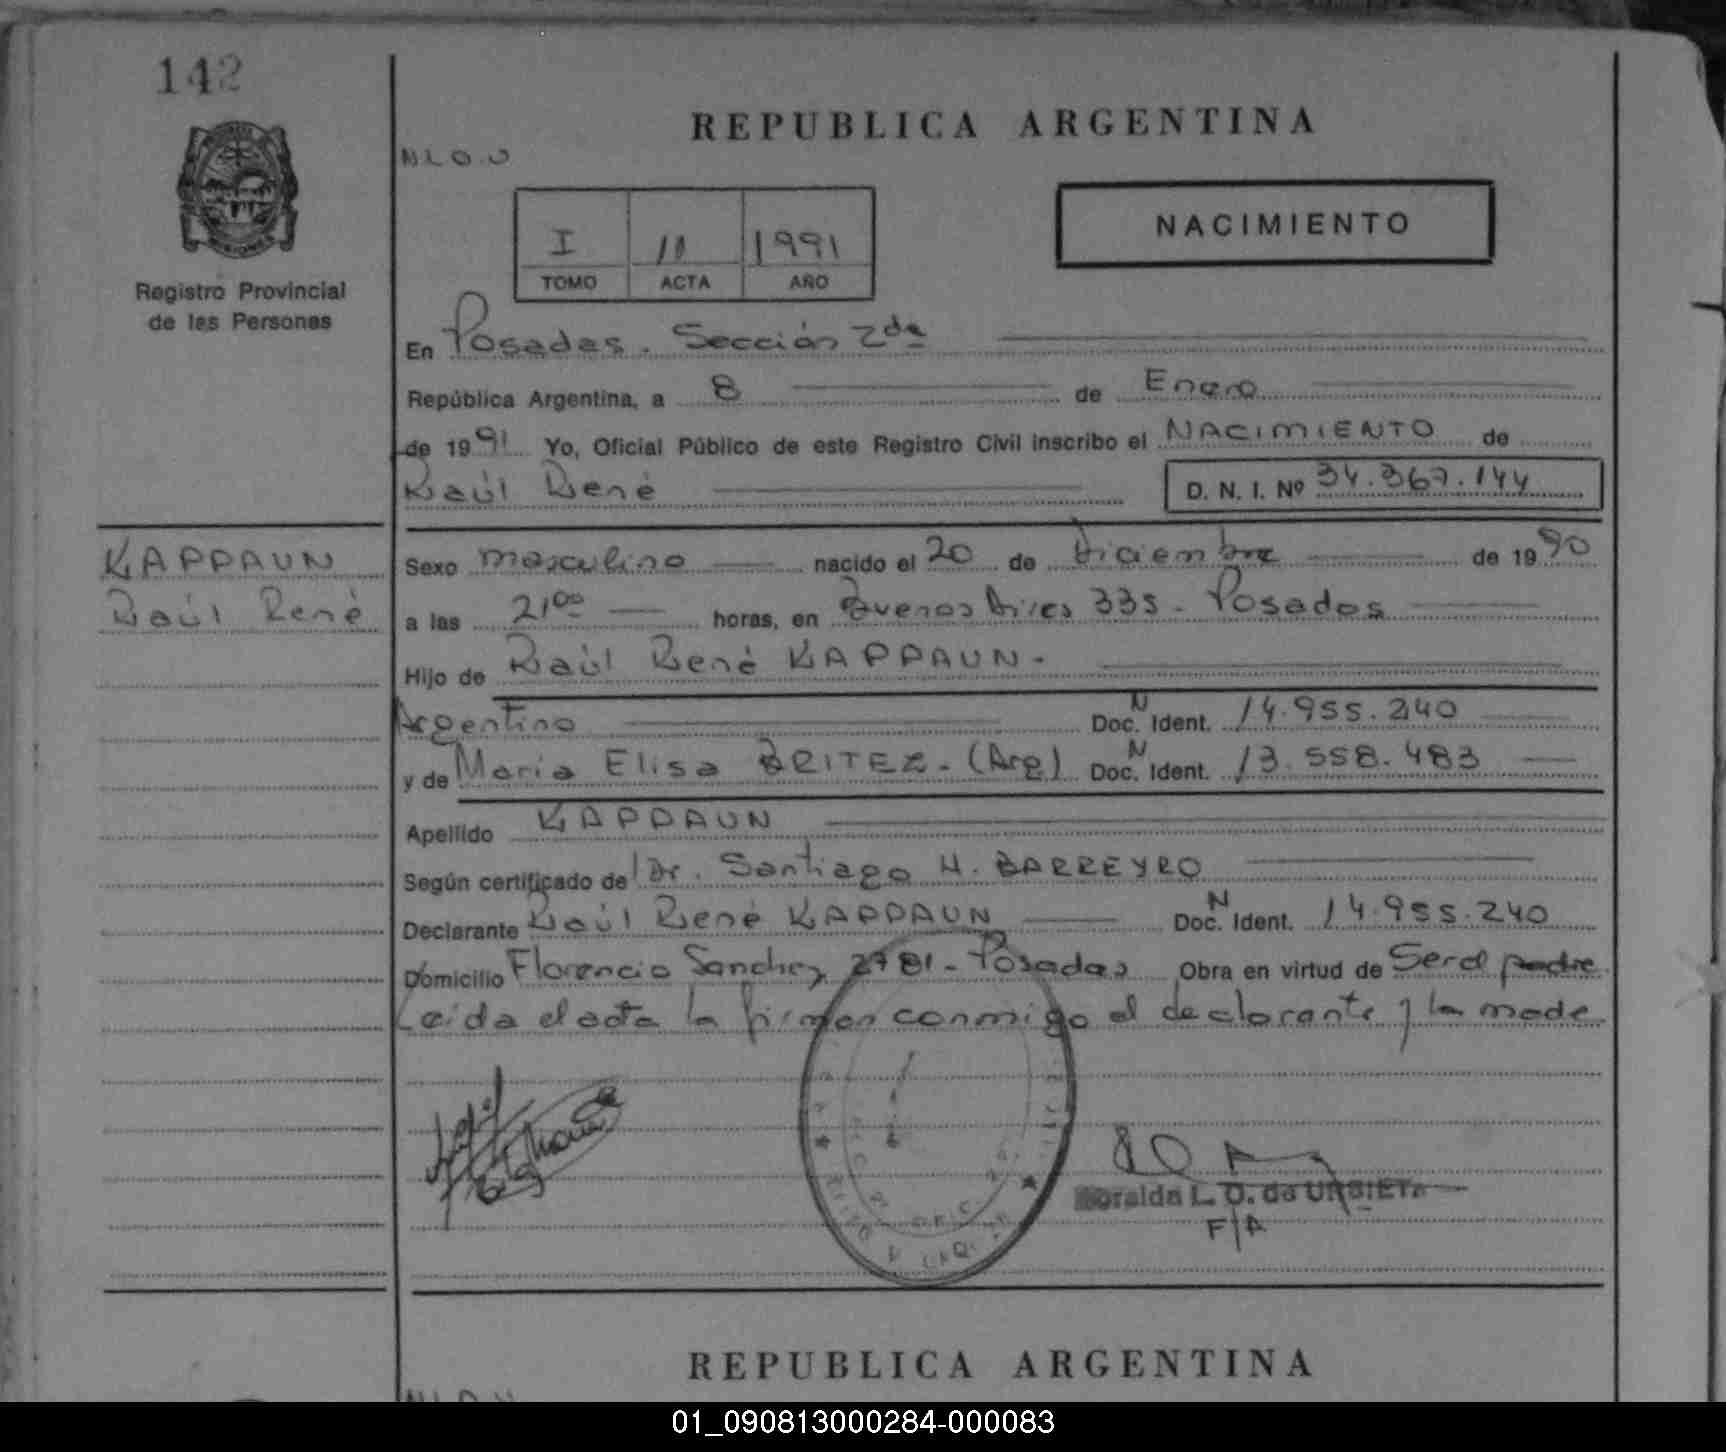 142
REPUBLICA ARGENTINA
NLO.U
NACIMIENTO
I 11 1991
TOMO ACTA AÑO
Registro Provincial
de las Personas
En Posadas. Sección 2da
República Argentina, a 8 de Enero
de 1991 Yo, Oficial Público de este Registro Civil inscribo el NACIMIENTO de
Raúl René D. N. I. Nº 34.367.144
KAPPAUN
Raúl René
Sexo masculino nacido el 20 de Diciembre de 1990
a las 21 00 horas, en Buenos Aires 335 - Posadas
Hijo de Raúl René KAPPAUN -
Argentino Doc. N Ident. 14.955.240
y de María Elisa BRITEZ - (Arg) Doc. N Ident. 13.558.483
Apellido KAPPAUN
Según certificado del Dr. Santiago H. BARREYRO
Declarante Raúl René KAPPAUN Doc. N Ident. 14.955.240
Domicilio Florencio Sanchez 2781 - Posadas Obra en virtud de Ser el padre
Leída el acta la firman conmigo el declarante y la madre
L. O. de URBIETA
F/A
REPUBLICA ARGENTINA
01_090813000284-000083